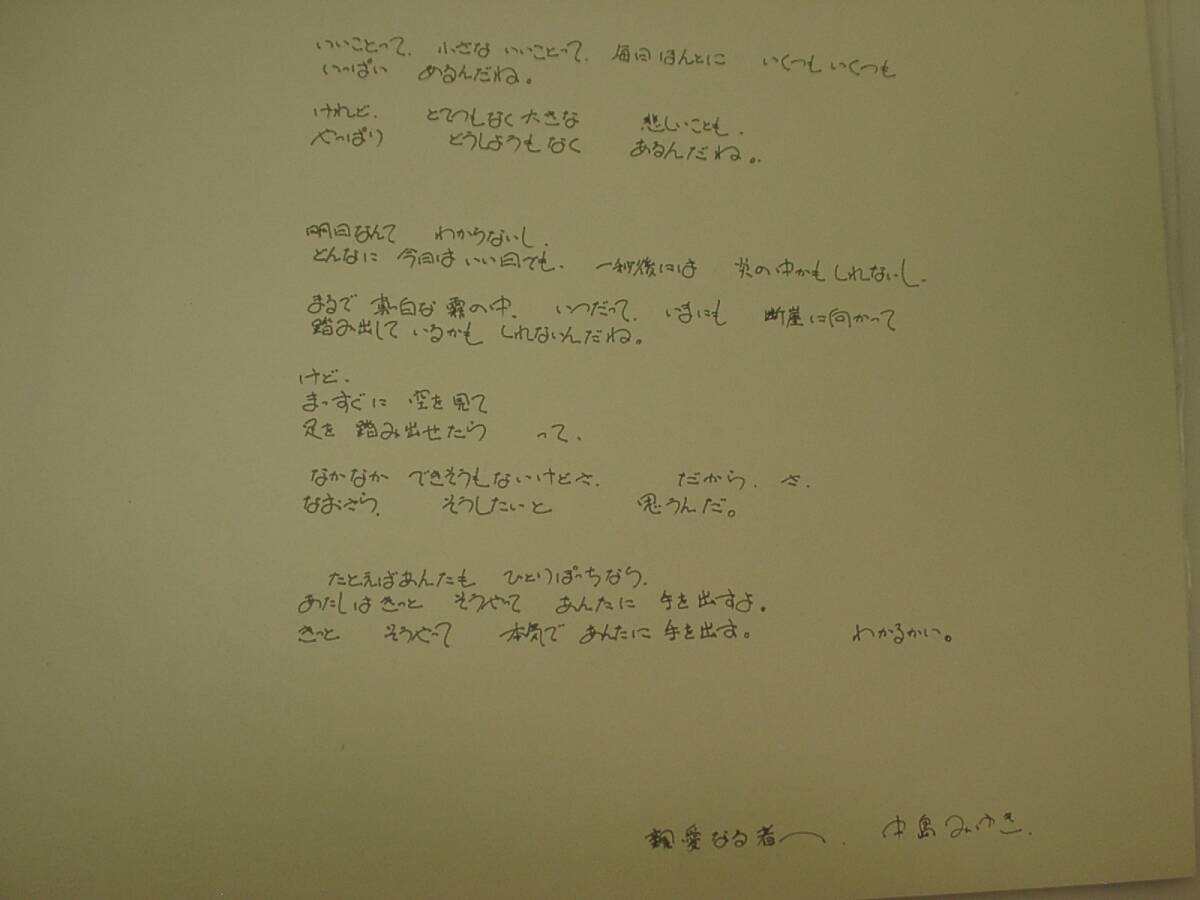 いいことって、小さな いいことって、毎日ほんとに いくつも いくつも
いっぱい あるんだね。
けれど、 とてつもなく大きな 悲しいことも、
やっぱり どうしようもなく あるんだね。
明日なんて わからないし、
どんなに 今日は いい日でも、 一秒後には 炎の中かもしれないし、
まるで 真白な 霧の中、 いつだって、 いまにも 断崖に向かって
踏み出して いるかも しれないんだね。
けど、
まっすぐに 空を見て
足を 踏み出せたら って、
なかなか できそうもないけどさ、 だから、さ、
なおさら、 そうしたいと 思うんだ。
たとえばあんたも ひとりぽっちなら、
あたしは きっと そうやって あんたに 手を出すよ。
きっと そうやって 本気で あんたに 手を出す。 わかるかい。
親愛なる者へ、 中島みゆき、